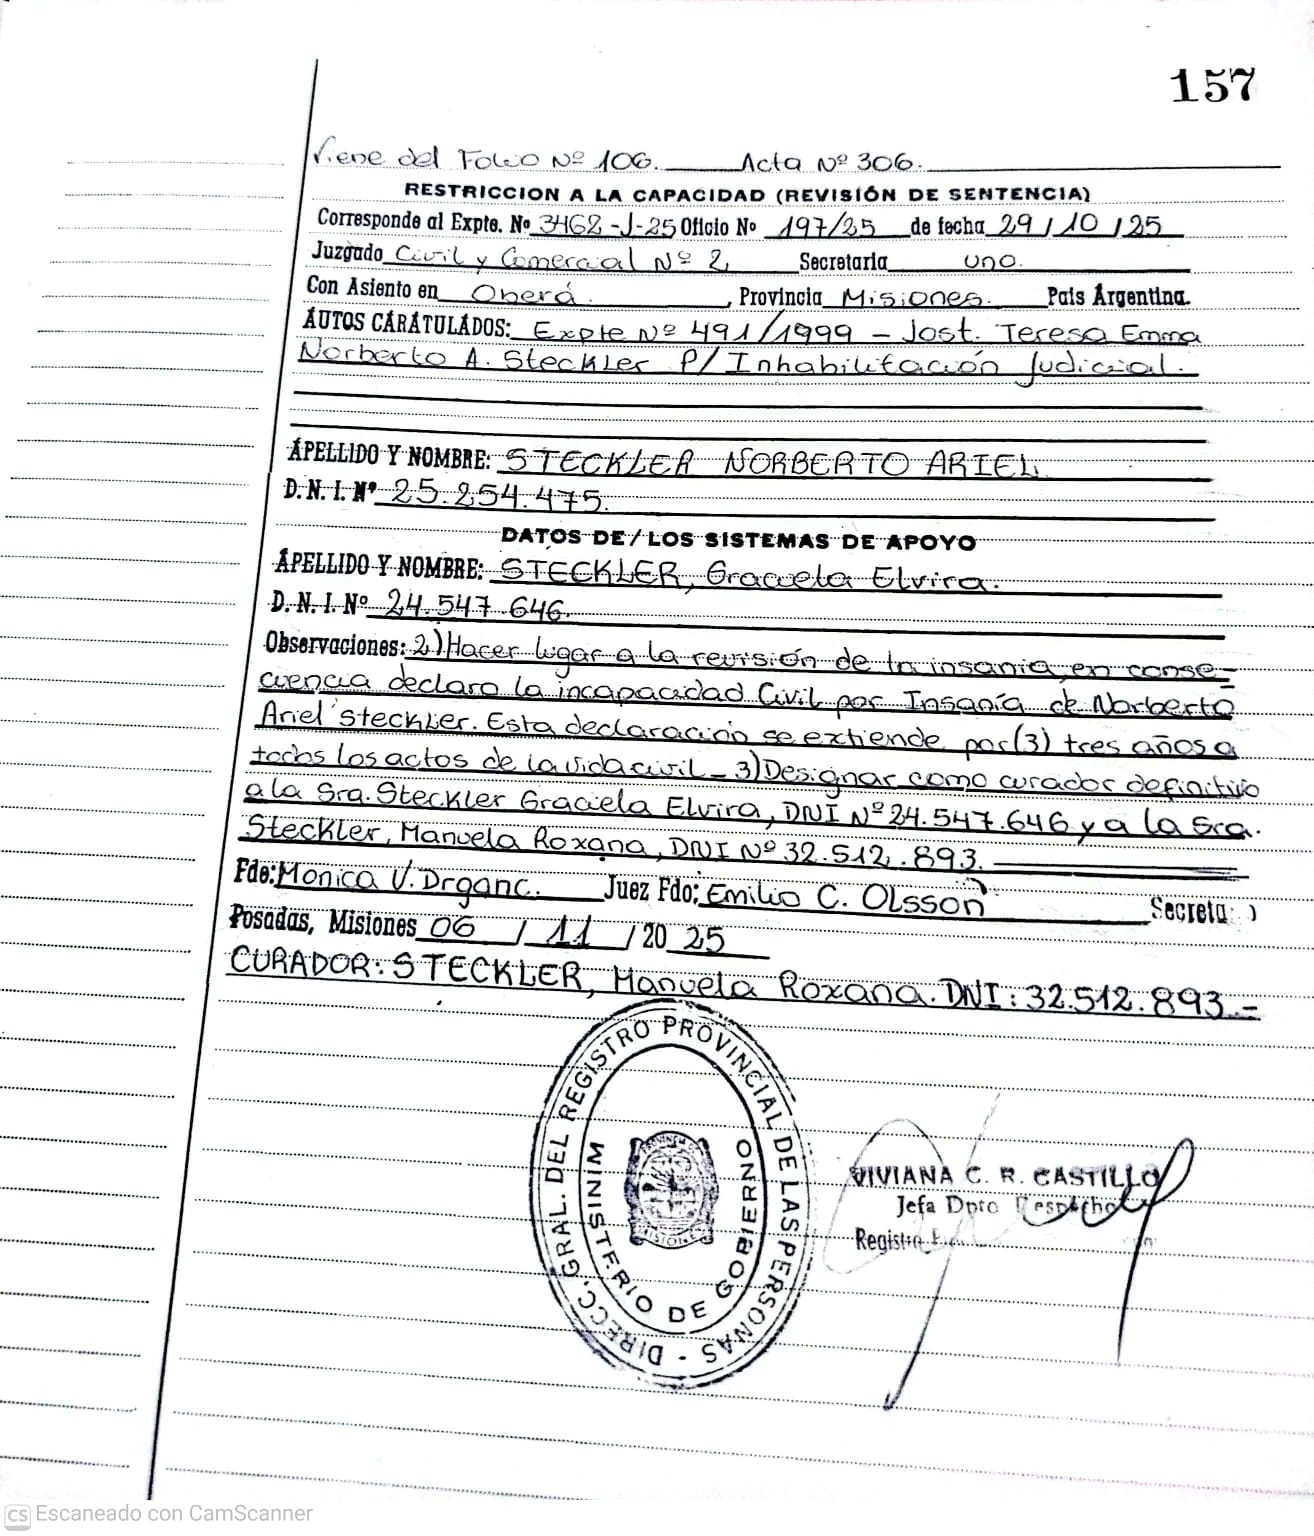 157
Viene del Folio Nº 106. Acta Nº 306.
RESTRICCION A LA CAPACIDAD (REVISIÓN DE SENTENCIA)
Corresponde al Expte. Nº 3462-J-25 Oficio Nº 197/25 de fecha 29/10/25
Juzgado Civil y Comercial Nº 2 Secretaria uno.
Con Asiento en Oberá. , Provincia Misiones. Pais Argentina.
AUTOS CARATULADOS: Expte Nº 491/1999 - Jost. Teresa Emma
Norberto A. Steckler P/ Inhabilitación Judicial.
APELLIDO Y NOMBRE: STECKLER NORBERTO ARIEL.
D.N.I. Nº 25.254.475.
DATOS DE/LOS SISTEMAS DE APOYO
APELLIDO Y NOMBRE: STECKLER, Graciela Elvira.
D.N.I. Nº 24.547.646.
Observaciones: 2) Hacer lugar a la revisión de la insania, en conse-
cuencia declaro la incapacidad Civil por Insanía de Norberto
Ariel Steckler. Esta declaración se extiende por (3) tres años a
todos los actos de la vida civil - 3) Designar como curador definitivo
a la Sra. Steckler Graciela Elvira, DNI Nº 24.547.646 y a la Sra.
Steckler, Manuela Roxana, DNI Nº 32.512.893.
Fdo: Monica V. Drganc. Juez Fdo: Emilio C. Olsson Secreta
Posadas, Misiones 06 / 11 / 20 25
CURADOR: STECKLER, Manuela Roxana. DNI: 32.512.893.=
DIRECC. GRAL. DEL REGISTRO PROVINCIAL DE LAS PERSONAS -
MINISTERIO DE GOBIERNO
MISIONES
VIVIANA C. R. CASTILLO
Jefa Dpto Despacho
CS Escaneado con CamScanner